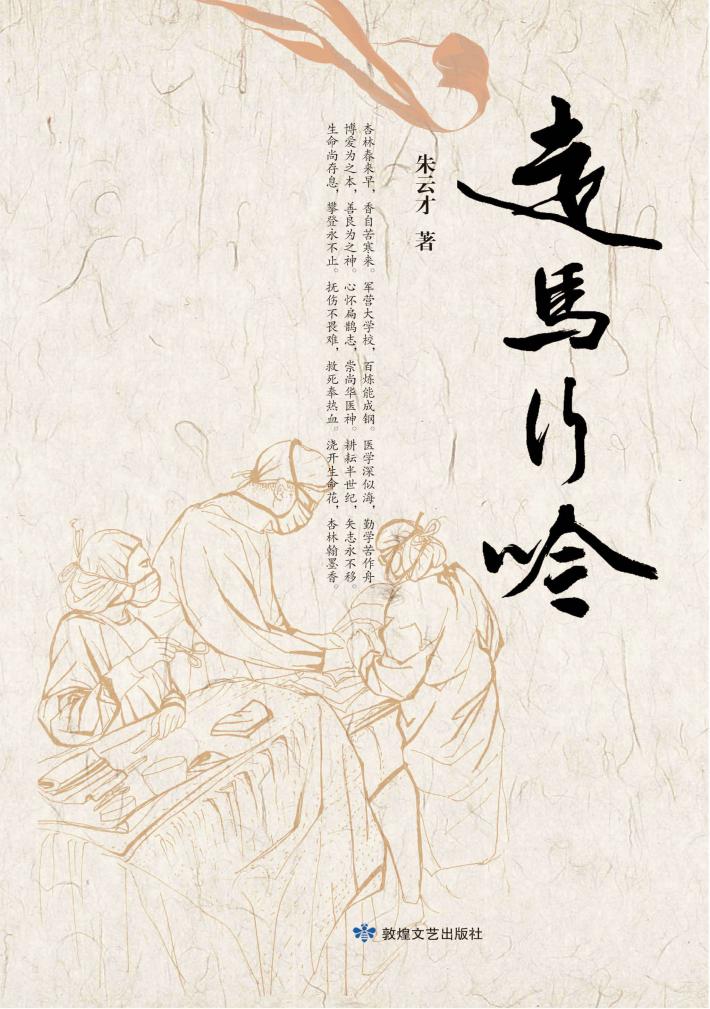 走馬行吟
朱云才 著
杏林春来早，香自苦寒来。军营大学校，百炼能成钢。医学深似海，勤学苦作舟。
博爱为之本，善良为之神。心怀扁鹊志，崇尚华医神。耕耘半世纪，矢志永不移。
生命尚存息，攀登永不止。抚伤不畏难，救死奉热血。浇开生命花，杏林翰墨香。
敦煌文艺出版社